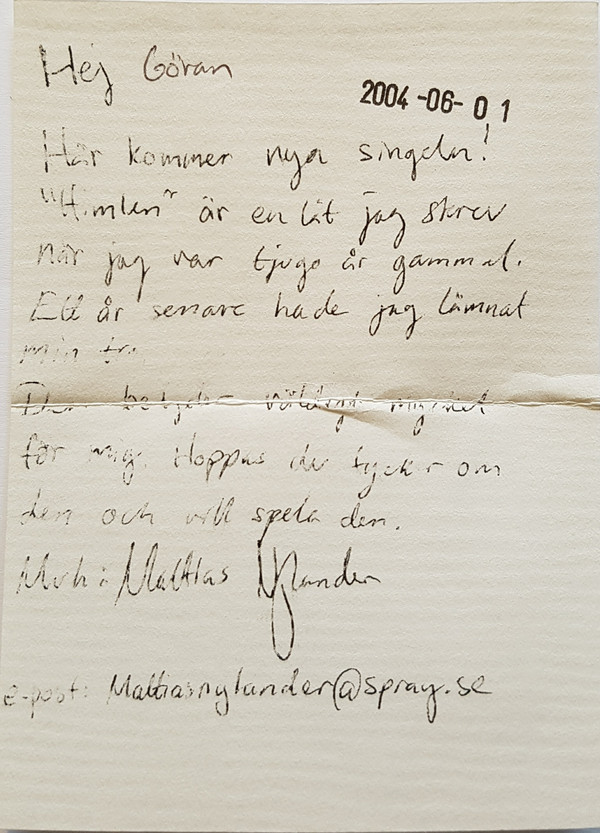 Hej Göran
2004-06-01
Här kommer nya singeln!
"Himlen" är en låt jag skrev
när jag var tjugo år gammal.
Ett år senare hade jag lämnat
min tro.
Den betyder väldigt mycket
för mig. Hoppas du tycker om
den och vill spela den.
Mvh: Mattias Nylander
e-post: Mattiasnylander@spray.se